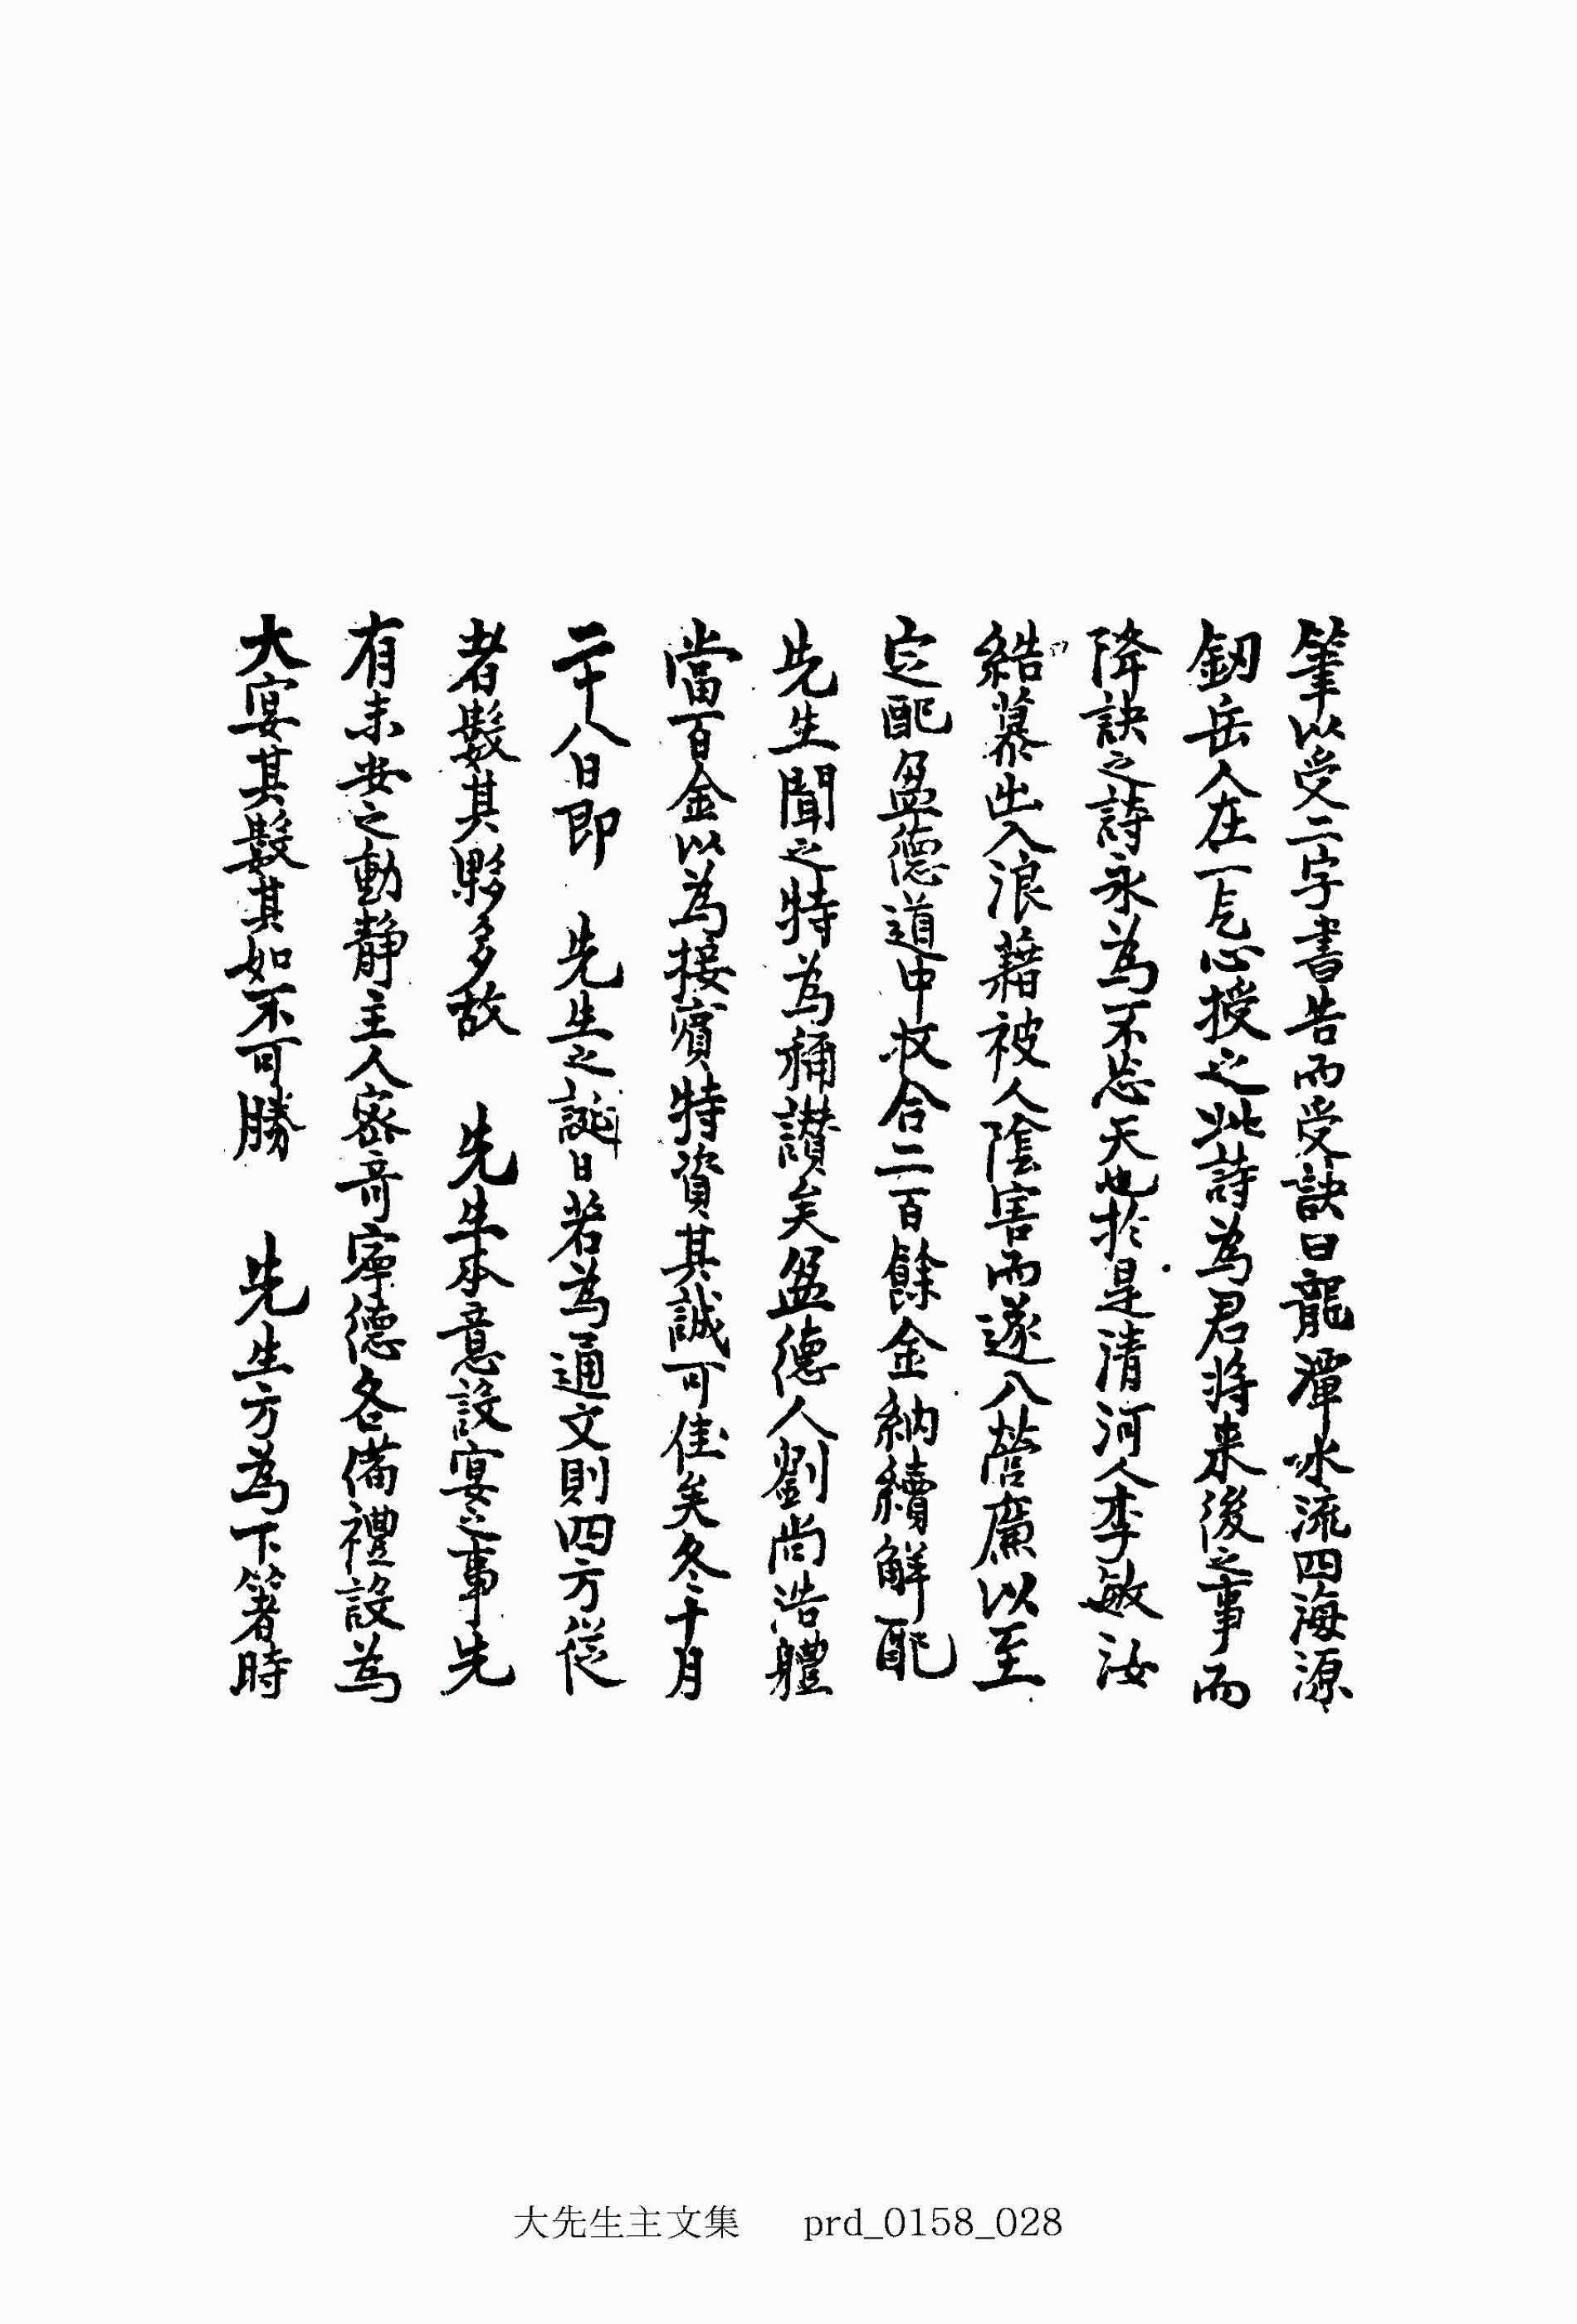 筆以受二字書告而受訣曰龍潭水流四海源
釼岳人在一片心授之此詩為君将来後之事而
降訣之詩永為不忘天也於是清河人李敏汝
結幕出入浪藉被人陰害而遂入營廉以至
定配盈德道中收合二百餘金納續解配
先生聞之特為稱讃矣盈德人劉尚浩軆
當百金以為接賓特資其誠可佳矣冬十月
二十八日即 先生之誕日若為通文則四方從
者数其夥多故 先生本意設宴之事先
有未安之動静主人密奇寧德各備禮設為
大宴其数其如不可勝 先生方為下箸時
大先生主文集 prd_0158_028